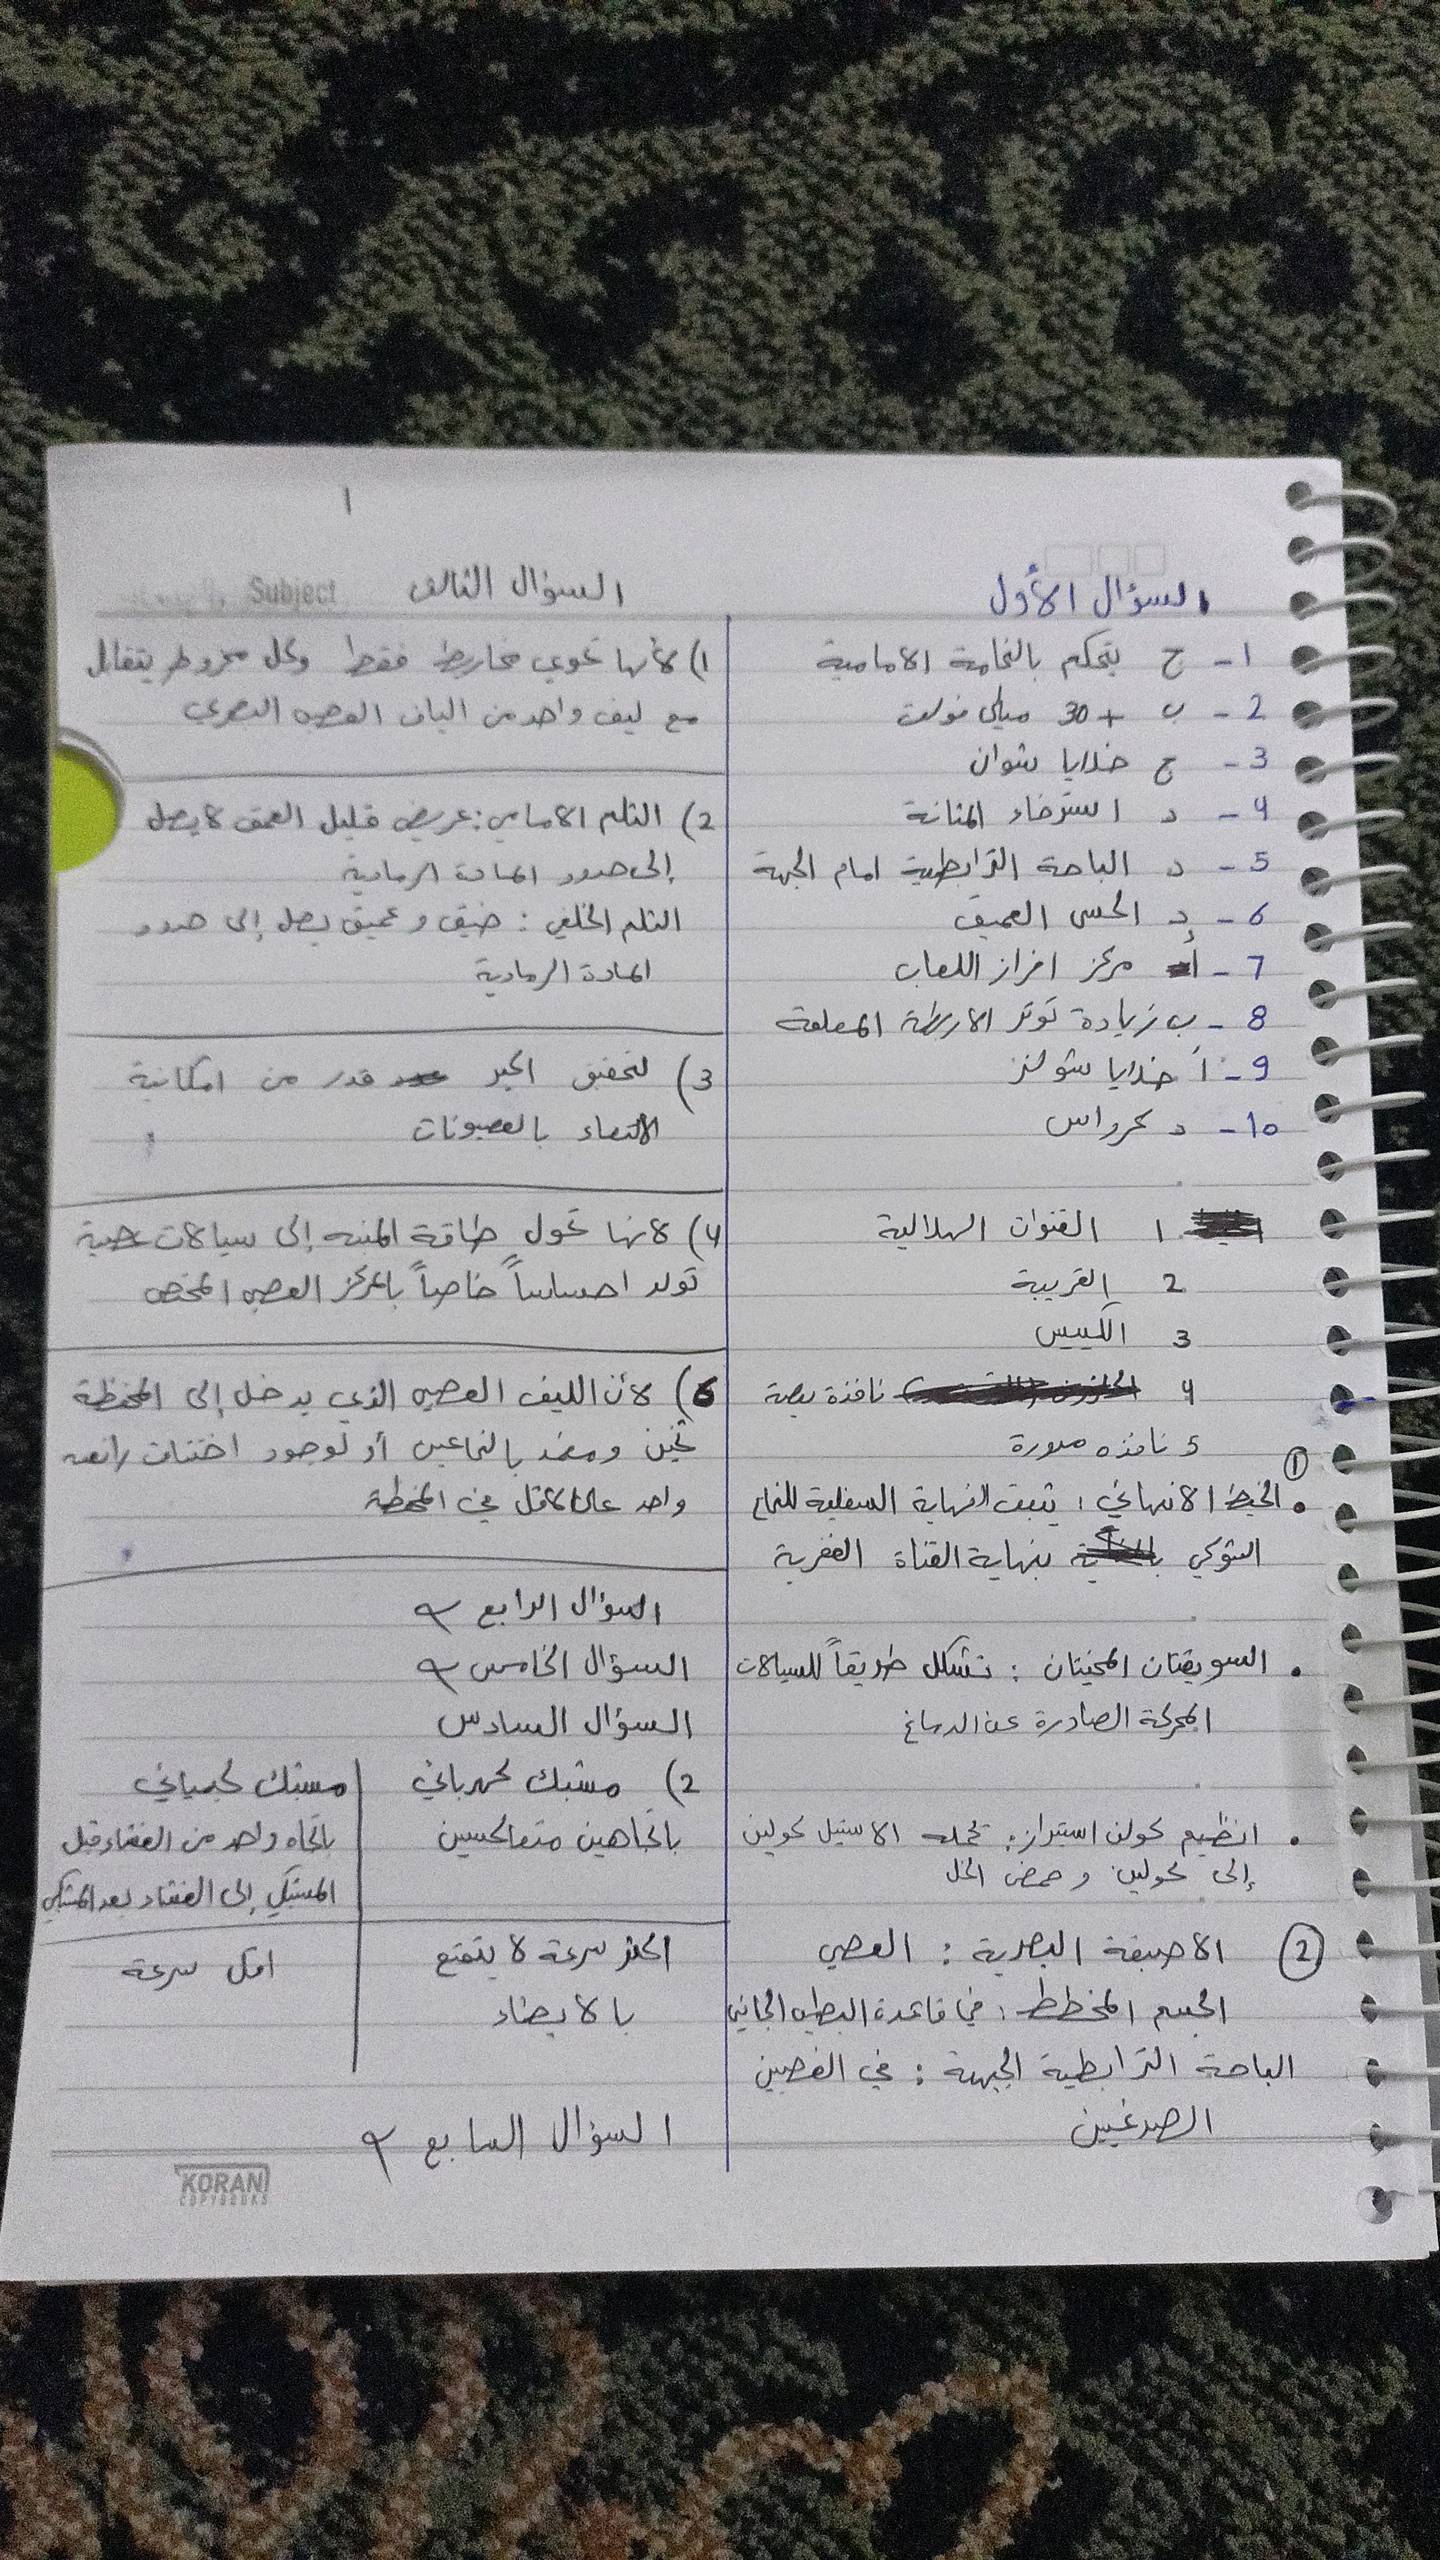 1
السؤال الأول
1- ج يتحكم بالنخامة الامامية
2- ب +30 ميلي فولت
3- ج خلايا شوان
4- د استرخاء المثانة
5- د الباحة الترابطية امام الجبهة
6- د الحس العميق
7- أ مركز افراز اللعاب
8- ب زيادة توتر الاربطة المعلقة
9- أ خلايا شولتز
10- د كرواس
1 القنوات الهلالية
2 القريبة
3 الكييس
4 نافذة بيضية
5 نافذه مدورة
①
• الخيط الانهائي: تثبت النهاية السفلية للنخاع
الشوكي بنهاية القناة الفقرية
• السويقتان المخيتان: تشكل طريقاً للسيالات
المحركة الصادرة عن الدماغ
• انظيم كولن استيراز: تحلمه الاستيل كولين
إلى كولين وحمض الخل
② الاصبغة البصرية: العصي
الجسم المخطط: في قاعدة البطين الجانبي
الباحة الترابطية الجبهية: في الفصين
الصدغيين
Subject
السؤال الثالث
1) لأنها تحوي مخاريط فقط وكل مخروط يتقابل
مع ليف واحد من الياف العصب البصري
2) الثلم الامامي: عريض قليل العمق لا يصل
إلى حدود المادة الرمادية
الثلم الخلفي: ضيق وعميق يصل إلى حدود
المادة الرمادية
3) لتحقيق اكبر قدر من امكانية
الالتقاء بالعصبونات
4) لانها تحول طاقة المنبه إلى سيالات عصبية
تولد احساساً خاصاً بالمركز العصبي المختص
6) لأن الليف العصبي الذي يدخل إلى المحفظة
ثخين ومغمد بالنخاعين أو لوجود اختناق رانفيه
واحد على الاقل في المحفظة
السؤال الرابع
السؤال الخامس
السؤال السادس
2) مشبك كهربائي
مشبك كيميائي
باتجاهين متعاكسين
باتجاه واحد من الغشاء قبل
المشبكي إلى الغشاء بعد المشبكي
اكثر سرعة لا يتمتع
اقل سرعة
بالابطاء
السؤال السابع
KORANI
COPYBOOKS